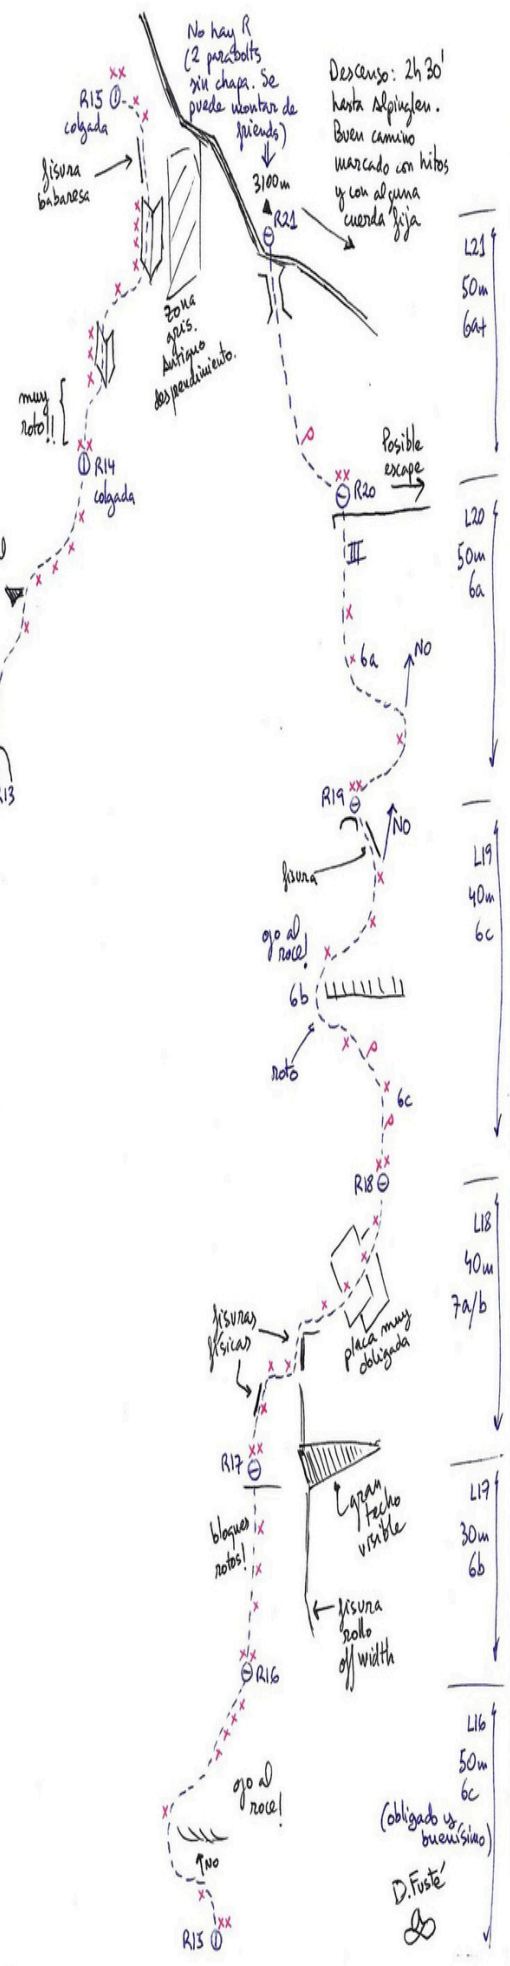 No hay R
(2 parabolts
sin chapa. Se
puede montar de
friends)
3100m
R21
Descenso: 2h 30'
hasta Alpinglen.
Buen camino
marcado con hitos
y con alguna
cuerda fija
R15
colgada
fisura
babaresa
Zona
gris.
Antiguo
desprendimiento.
muy
roto!!
R14
colgada
R13
L21
50m
6a+
Posible
escape
R20
III
L20
50m
6a
6a
NO
R19
NO
fisura
L19
40m
6c
ojo al
roce!
6b
roto
6c
R18
L18
40m
7a/b
placa muy
obligada
fisuras
físicas
R17
gran
techo
visible
L17
30m
6b
bloques
rotos!
fisura
rollo
off width
R16
L16
50m
6c
(obligado y
buenísimo)
ojo al
roce!
NO
R15
D.Fusté